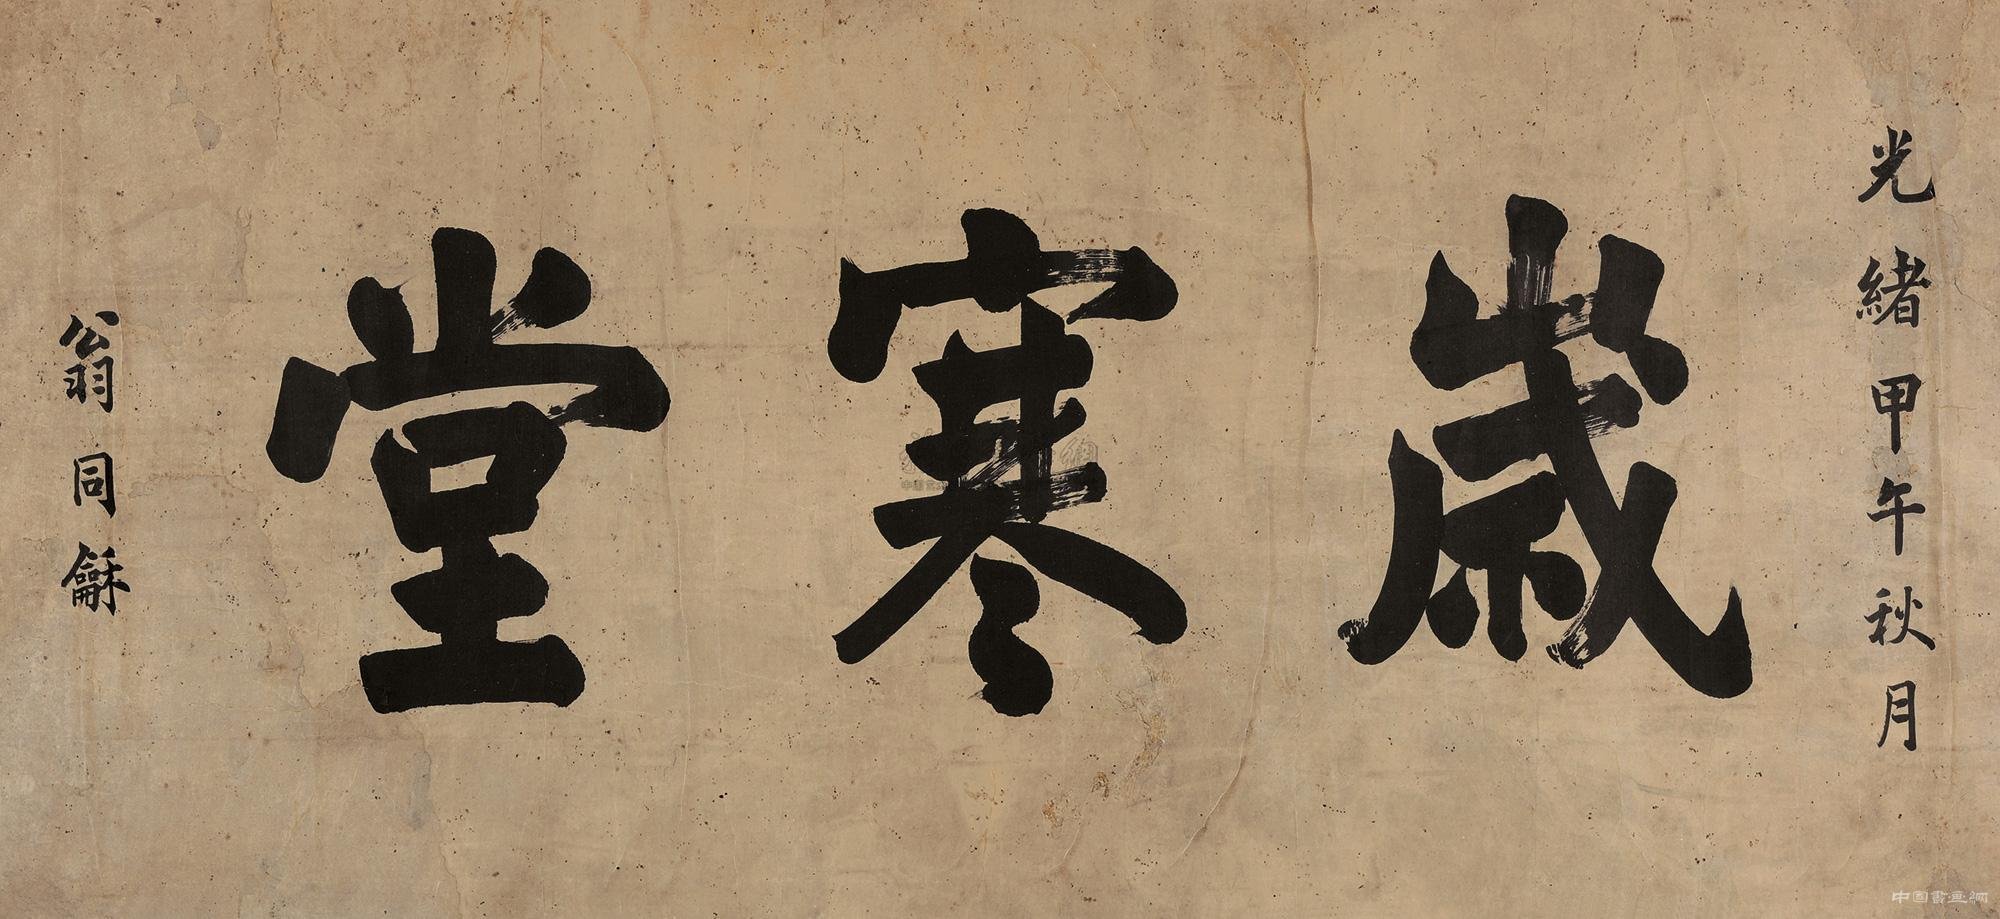 光緒甲午秋月
歲寒堂
翁同龢
中国書画網